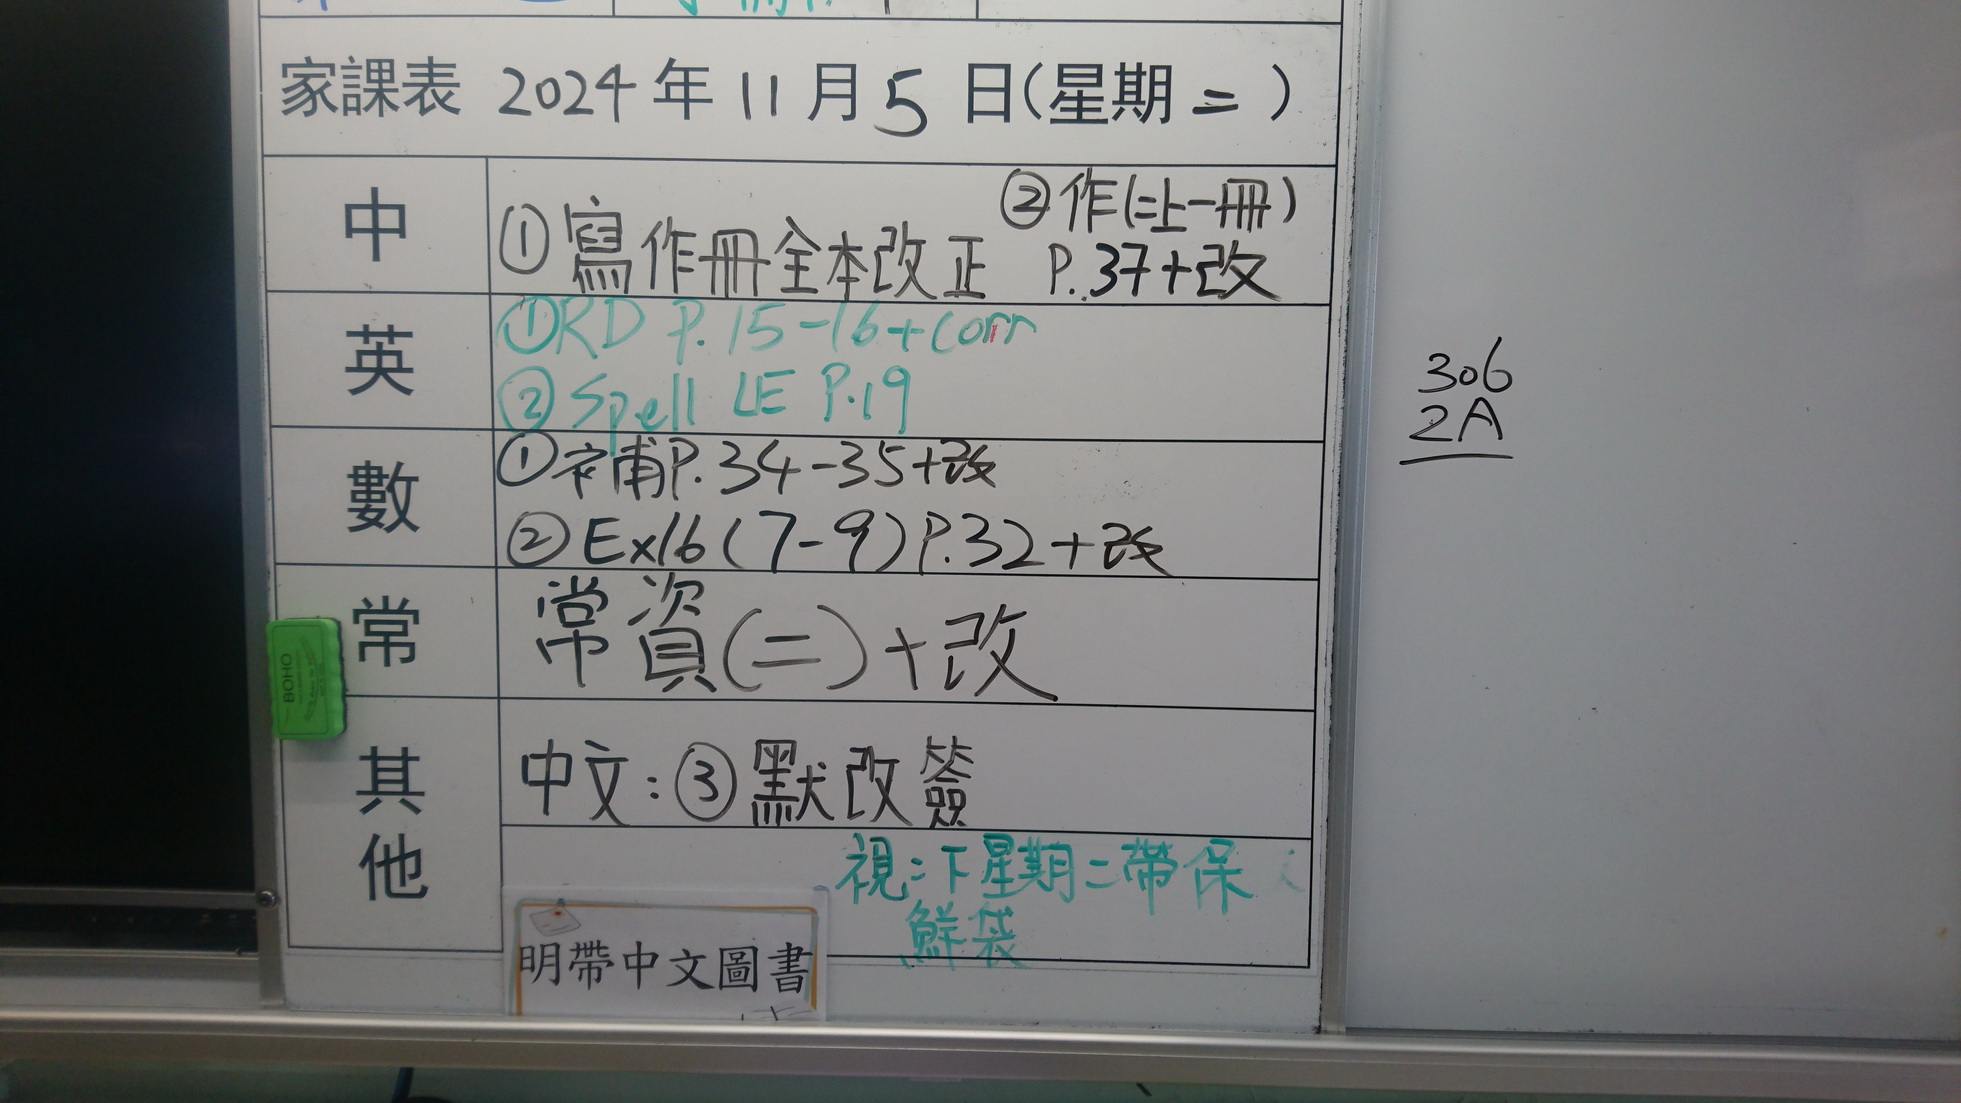 家課表 2024年11月5日(星期二)
中
②作(二上一冊)
①寫作冊全本改正 P.37+改
英
①RD P.15-16+corr
②Spell LE P.19
數
①補P.34-35+改
②Ex16(7-9)P.32+改
常
常資(二)+改
其他
中文:③默改簽
視:下星期二帶保
鮮袋
明帶中文圖書
306
2A
BOHO